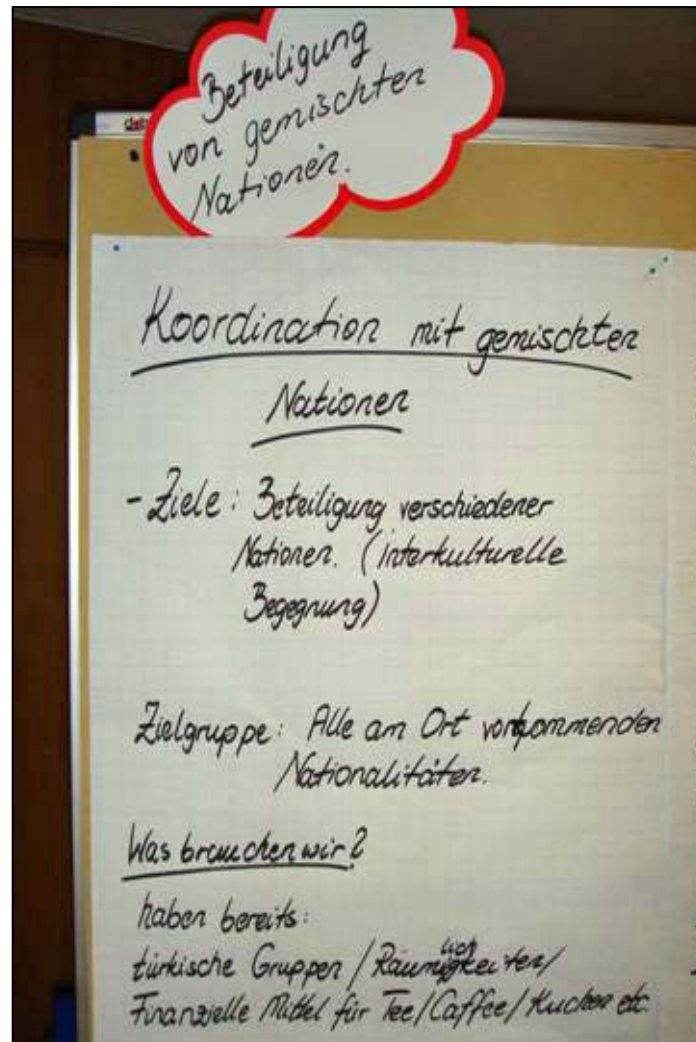 Beteiligung
von gemischten
Nationen.
Koordination mit gemischten
Nationen
- Ziele: Beteiligung verschiedener
Nationen. (interkulturelle
Begegnung)
Zielgruppe: Alle am Ort vorkommenden
Nationalitäten.
Was brauchen wir?
haben bereits:
türkische Gruppen / Räumlichkeiten/
Finanzielle Mittel für Tee/Caffee/Kuchen etc.